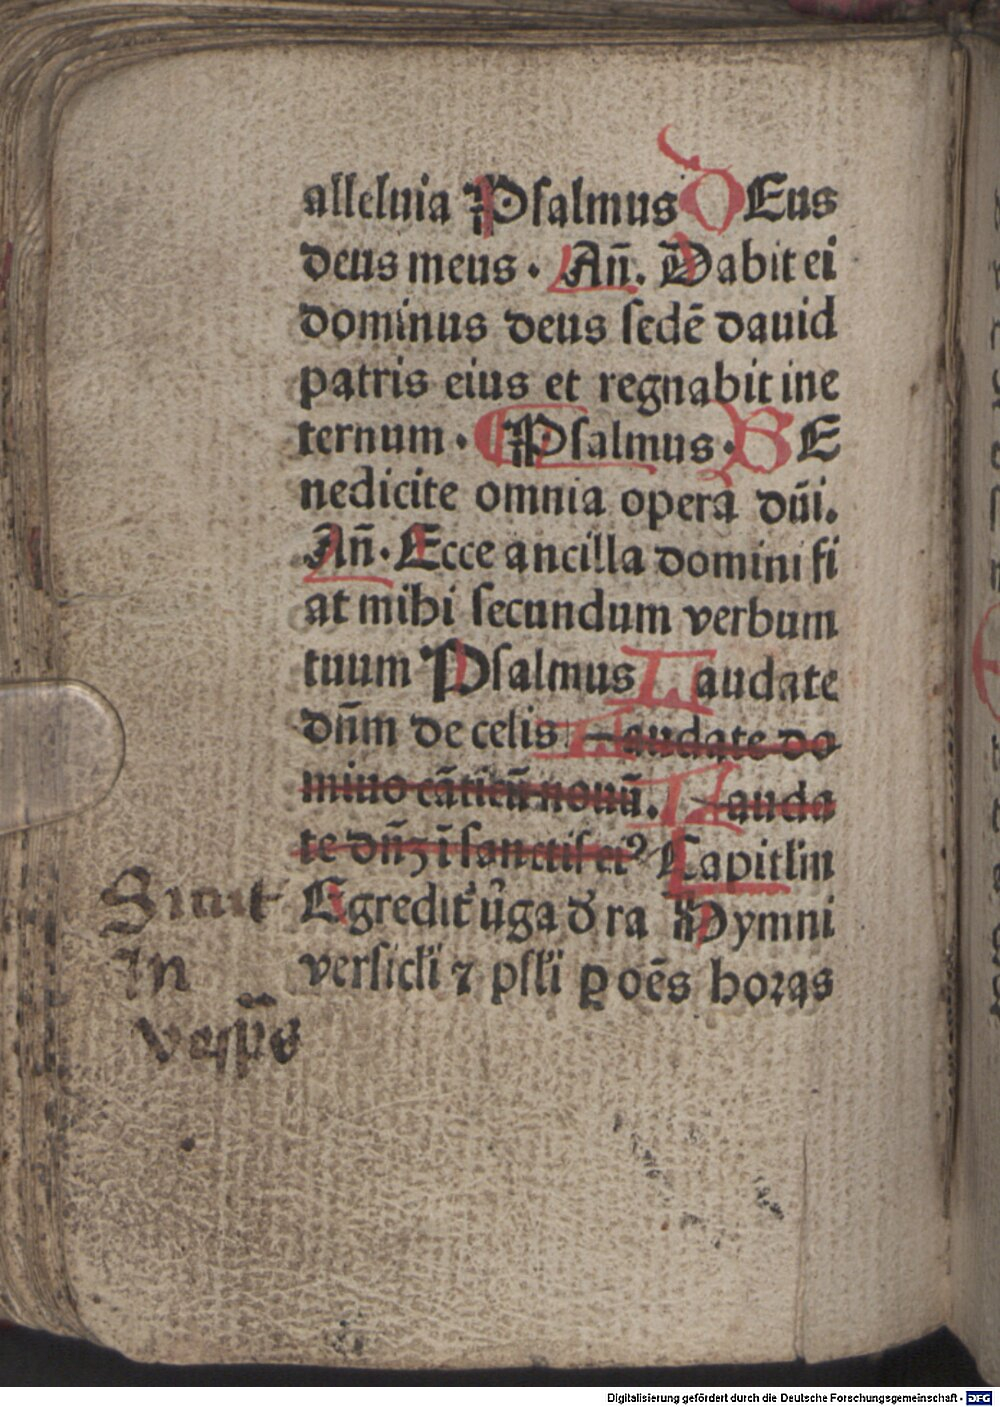 alleluia Psalmus DEus
deus meus. Añ. Dabit ei
dominus deus sedē dauid
patris eius et regnabit ine
ternum. Psalmus. BE
nedicite omnia opera dñi.
Añ. Ecce ancilla domini fi
at mihi secundum verbum
tuum Psalmus Laudate
dñm de celis Laudate do
mino cāticū nouū. Lauda
te dñꝫ ī sanctis eiꝰ Capitłm
Egredit᷑ ỽga ď ra Hymni
versicłi ⁊ psłi ꝑ oēs horas
Sicut
In
vesp̄s
Digitalisierung gefördert durch die Deutsche Forschungsgemeinschaft - DFG